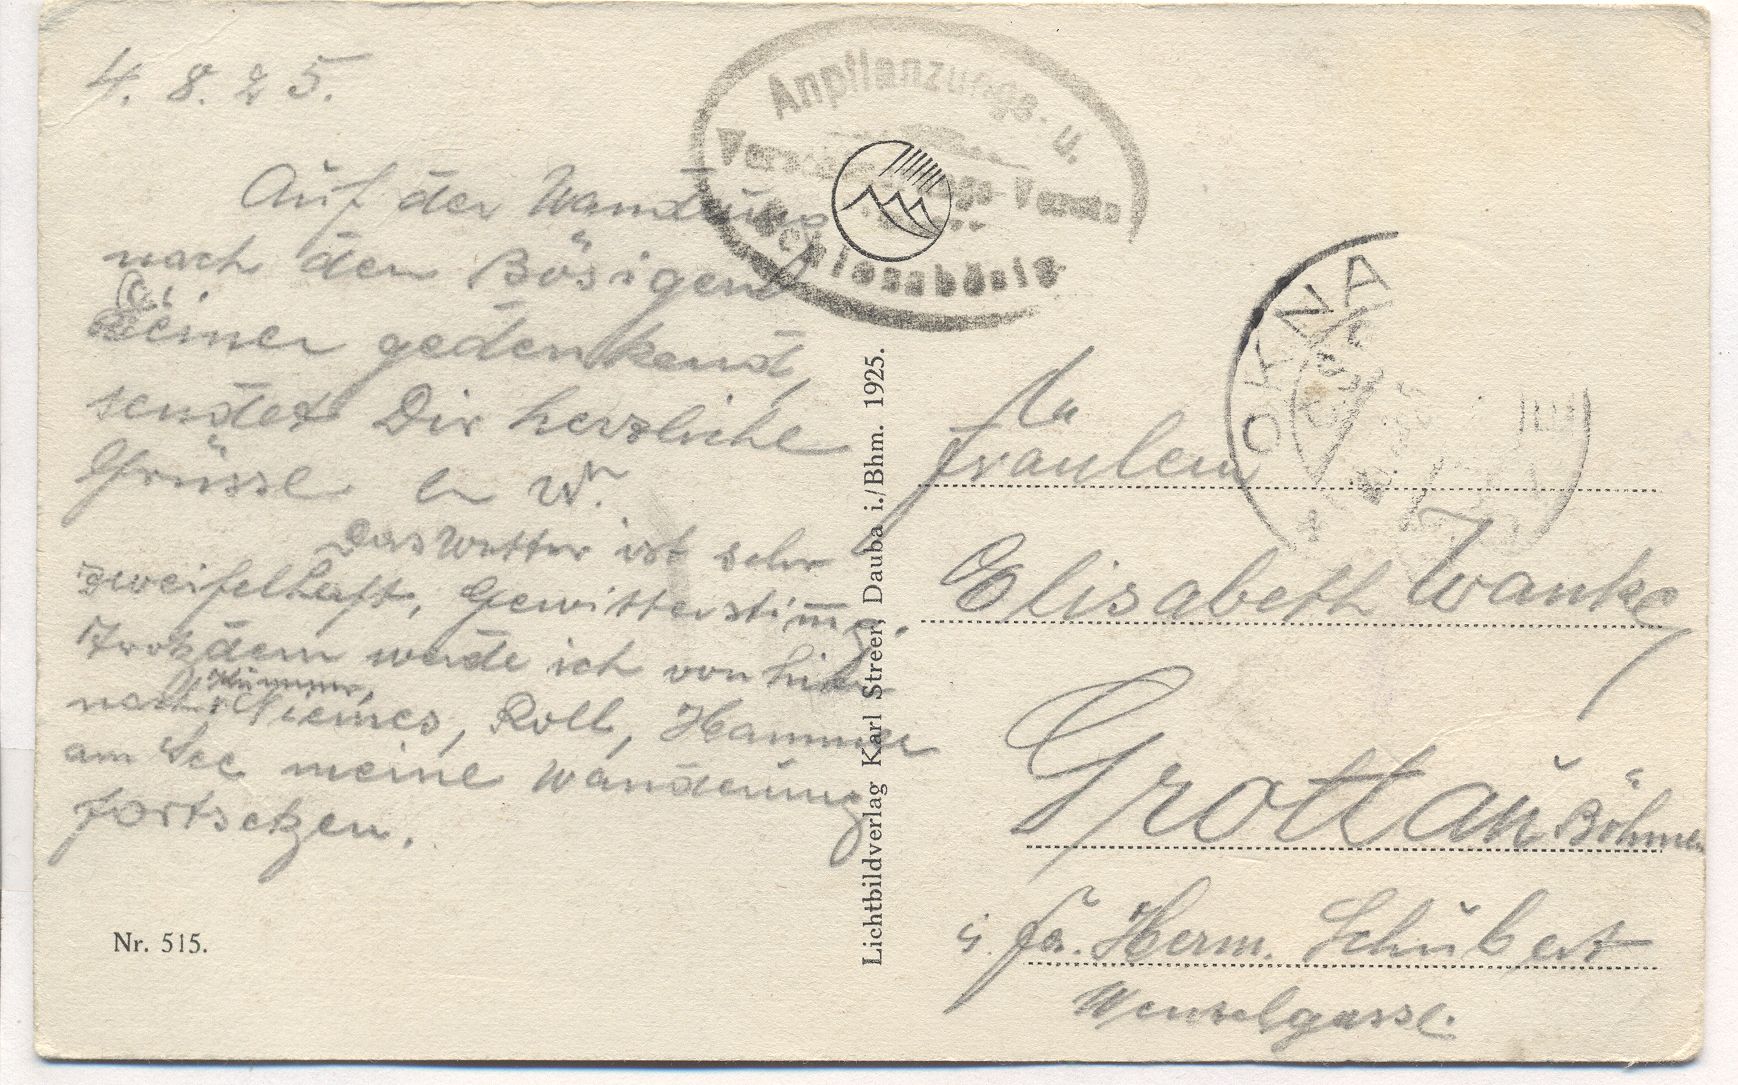 4. 8. 25.
Auf der Wanderung
nach den Bösigen
Deiner gedenkend,
sendet Dir herzliche
Grüsse
Das Wetter ist sehr
zweifelhaft, Gewitterstimmg.
Trotzdem werde ich von hier
nach Niemes, Roll, Hammer
am See meine Wanderung
fortsetzen.
Nr. 515.
Anpflanzungs- u.
Verschönerungs-Verein
Schlossbösig
Lichtbildverlag Karl Streer, Dauba i./Bhm. 1925.
OKNA
Fräulein
Elisabeth Wanke
Grottau Böhmen
Fa. Herm. Schubert
Wenzelgasse